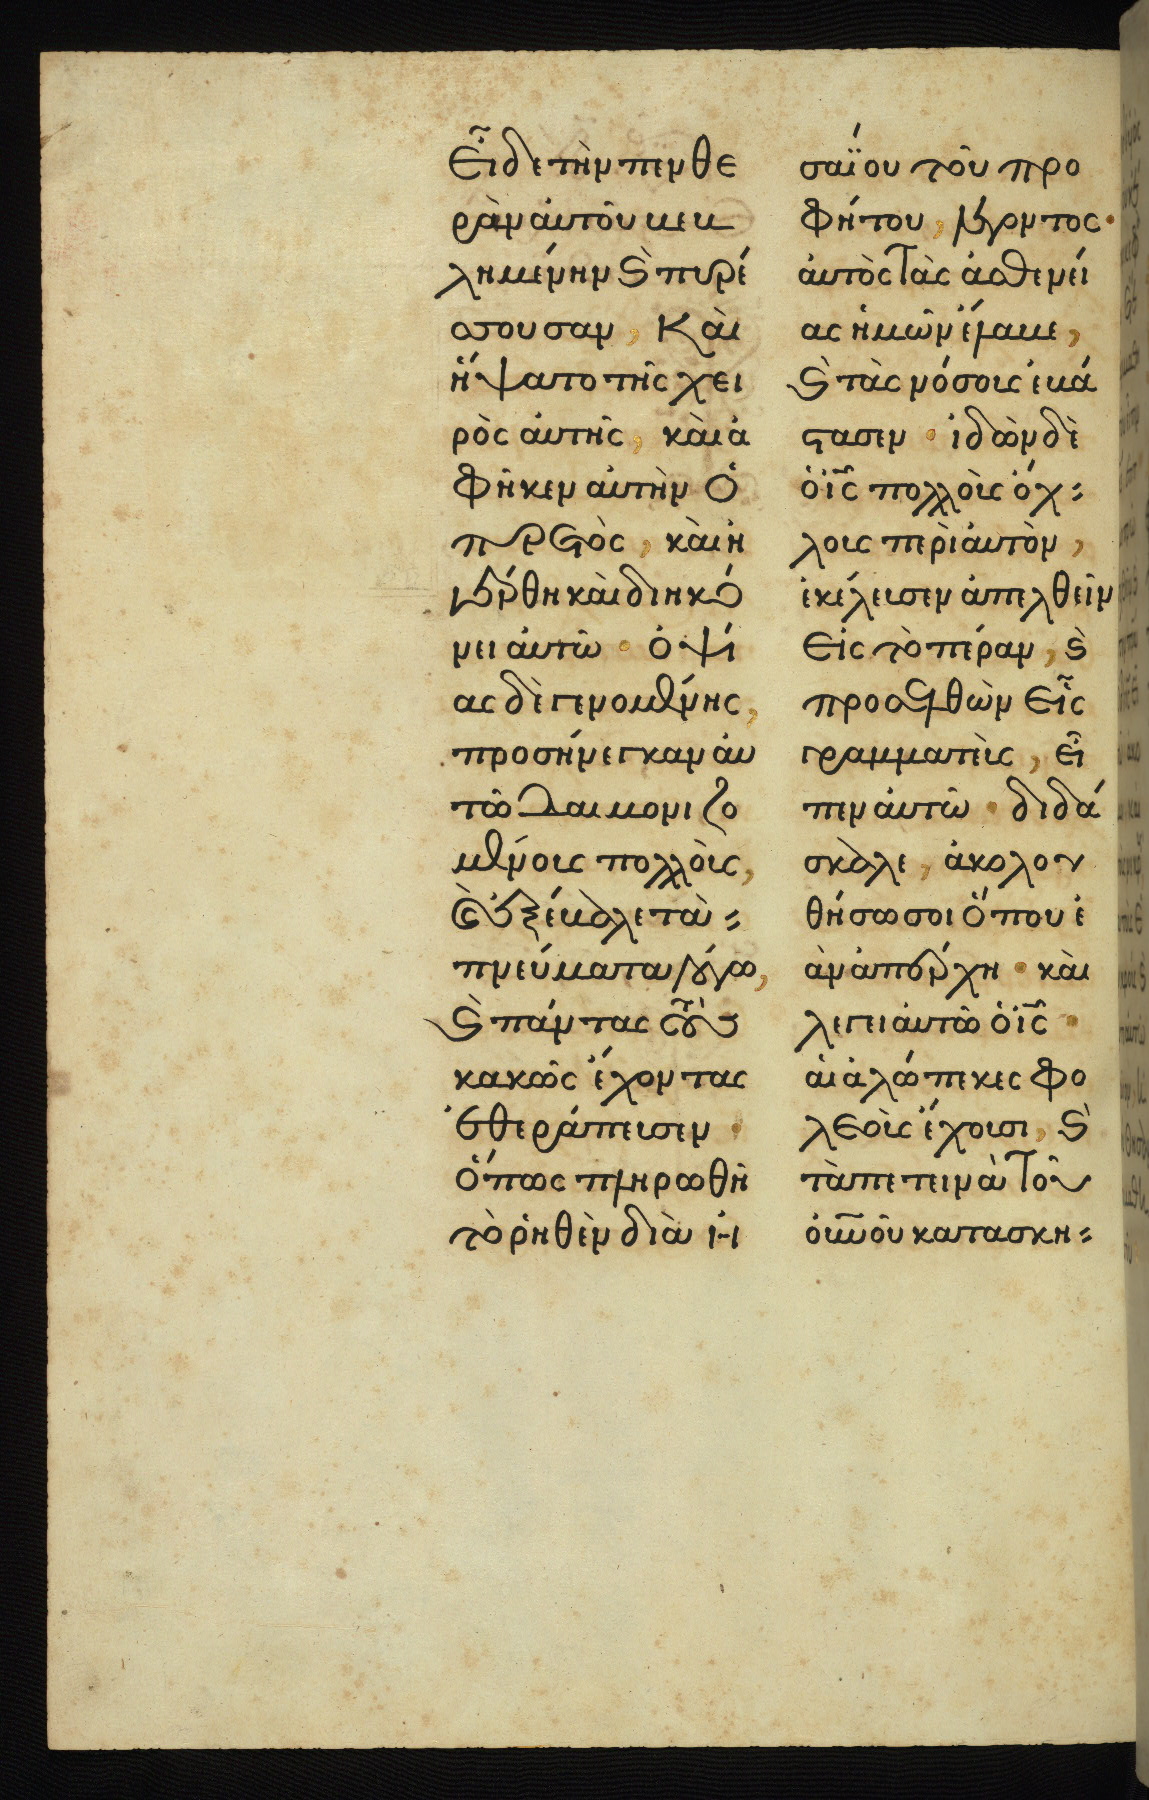 εἶδε τὴν πενθε
ρὰν αὐτοῦ βεβ
λημένην ϗ πυρέ
σσουσαν, καὶ
ἥψατο τῆς χει
ρὸς αὐτῆς, καὶ ἀ
φῆκεν αὐτὴν ὁ
πυρετὸς, καὶ ἠ
γέρθη καὶ διηκό
νει αὐτῶ · ὀψί
ας δὲ γενομένης,
προσήνεγκαν αὐ
τῶ δαιμονιζο
μένους πολλοὺς,
καὶ ἐξέβαλε τὰ =
πνεύματα λόγω,
ϗ πάντας τοὺς
κακῶς ἔχοντας
ἐθεράπευσεν ·
ὅπως πληρωθῆ
τὸ ῥηθὲν διὰ Ἠ
σαΐου τοῦ προ
φήτου, λέγοντος ·
αὐτὸς τὰς ἀσθενεί
ας ἡμῶν ἔλαβε,
ϗ τὰς νόσους ἐβά
στασεν · ἰδὼν δὲ
ὁ ῖς πολλοὺς ὄχ =
λους περὶ αὐτὸν,
ἐκέλευσεν ἀπελθεῖν
εἰς τὸ πέραν, ϗ
προσελθὼν εἷς
γραμματεὺς, εἶ
πεν αὐτῶ · διδά
σκαλε, ἀκολου
θήσω σοι ὅπου ἐ
ὰν ἀπέρχη · καὶ
λεγει αὐτῶ ὁ ῖς ·
αἱ ἀλώπεκες φο
λεοὺς ἔχουσι, ϗ
τὰ πετεινὰ τοῦ
οὐνοῦ κατασκη =